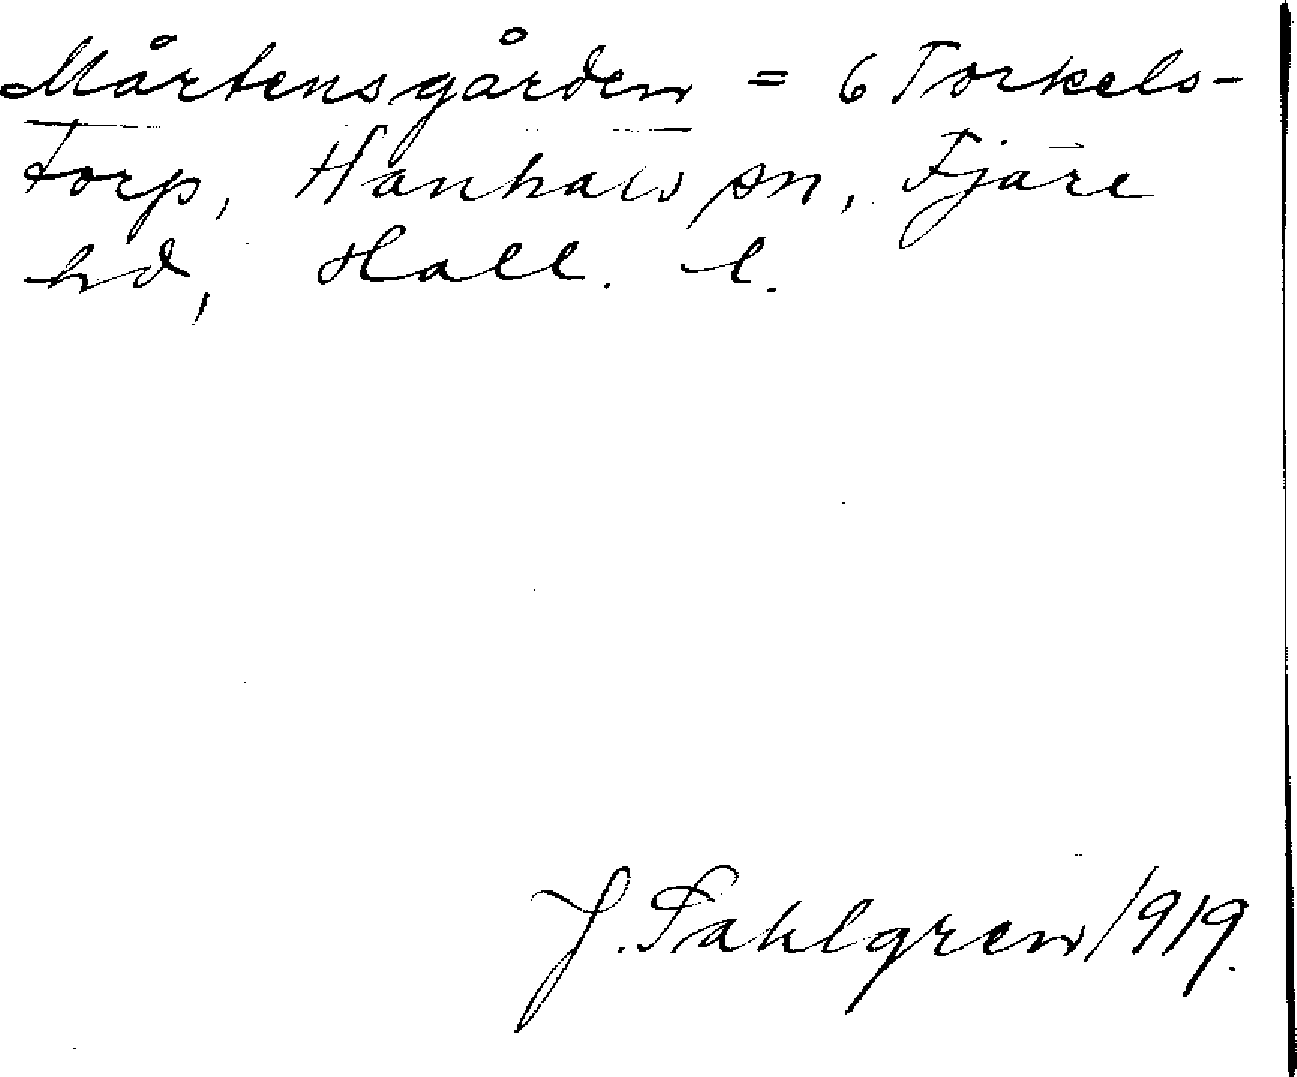 Mårtensgården = 6 Torkels-
torp, Hanhals sn, Fjäre
hd, Hall. l.
J. Sahlgren 1919.